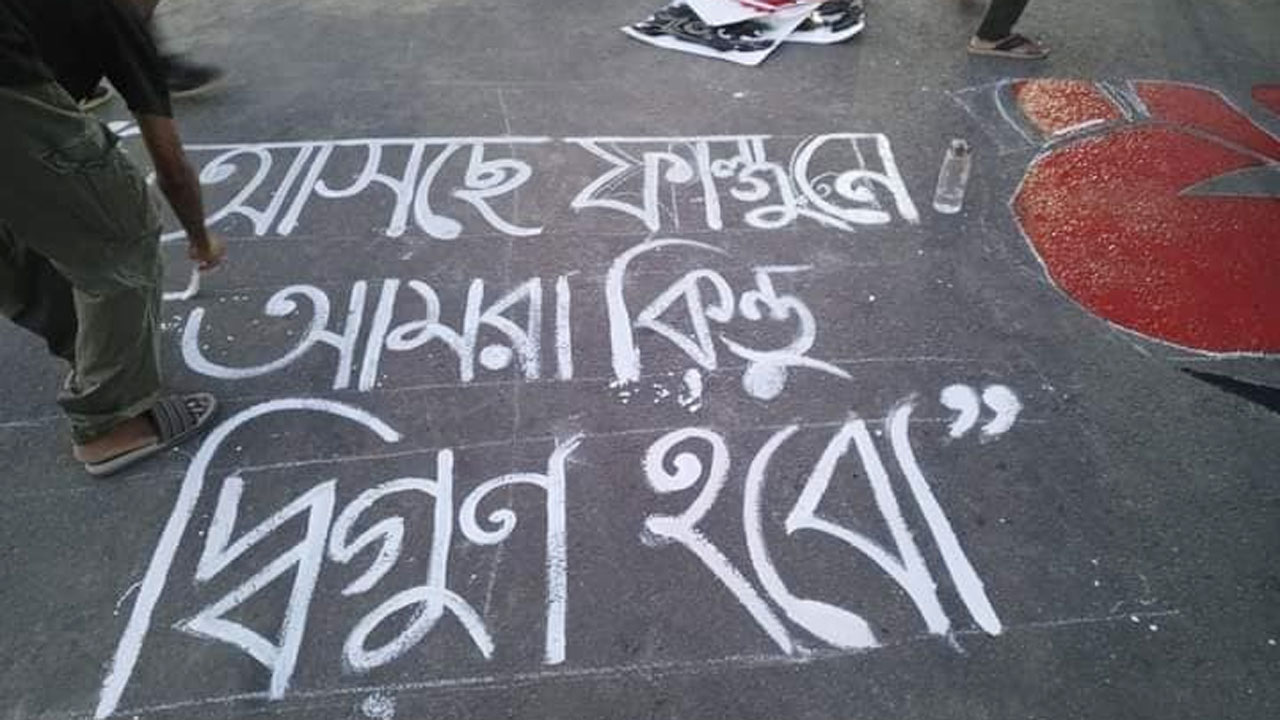 আসছে ফাল্গুনে
আমরা কিন্তু
দ্বিগুণ হবো”